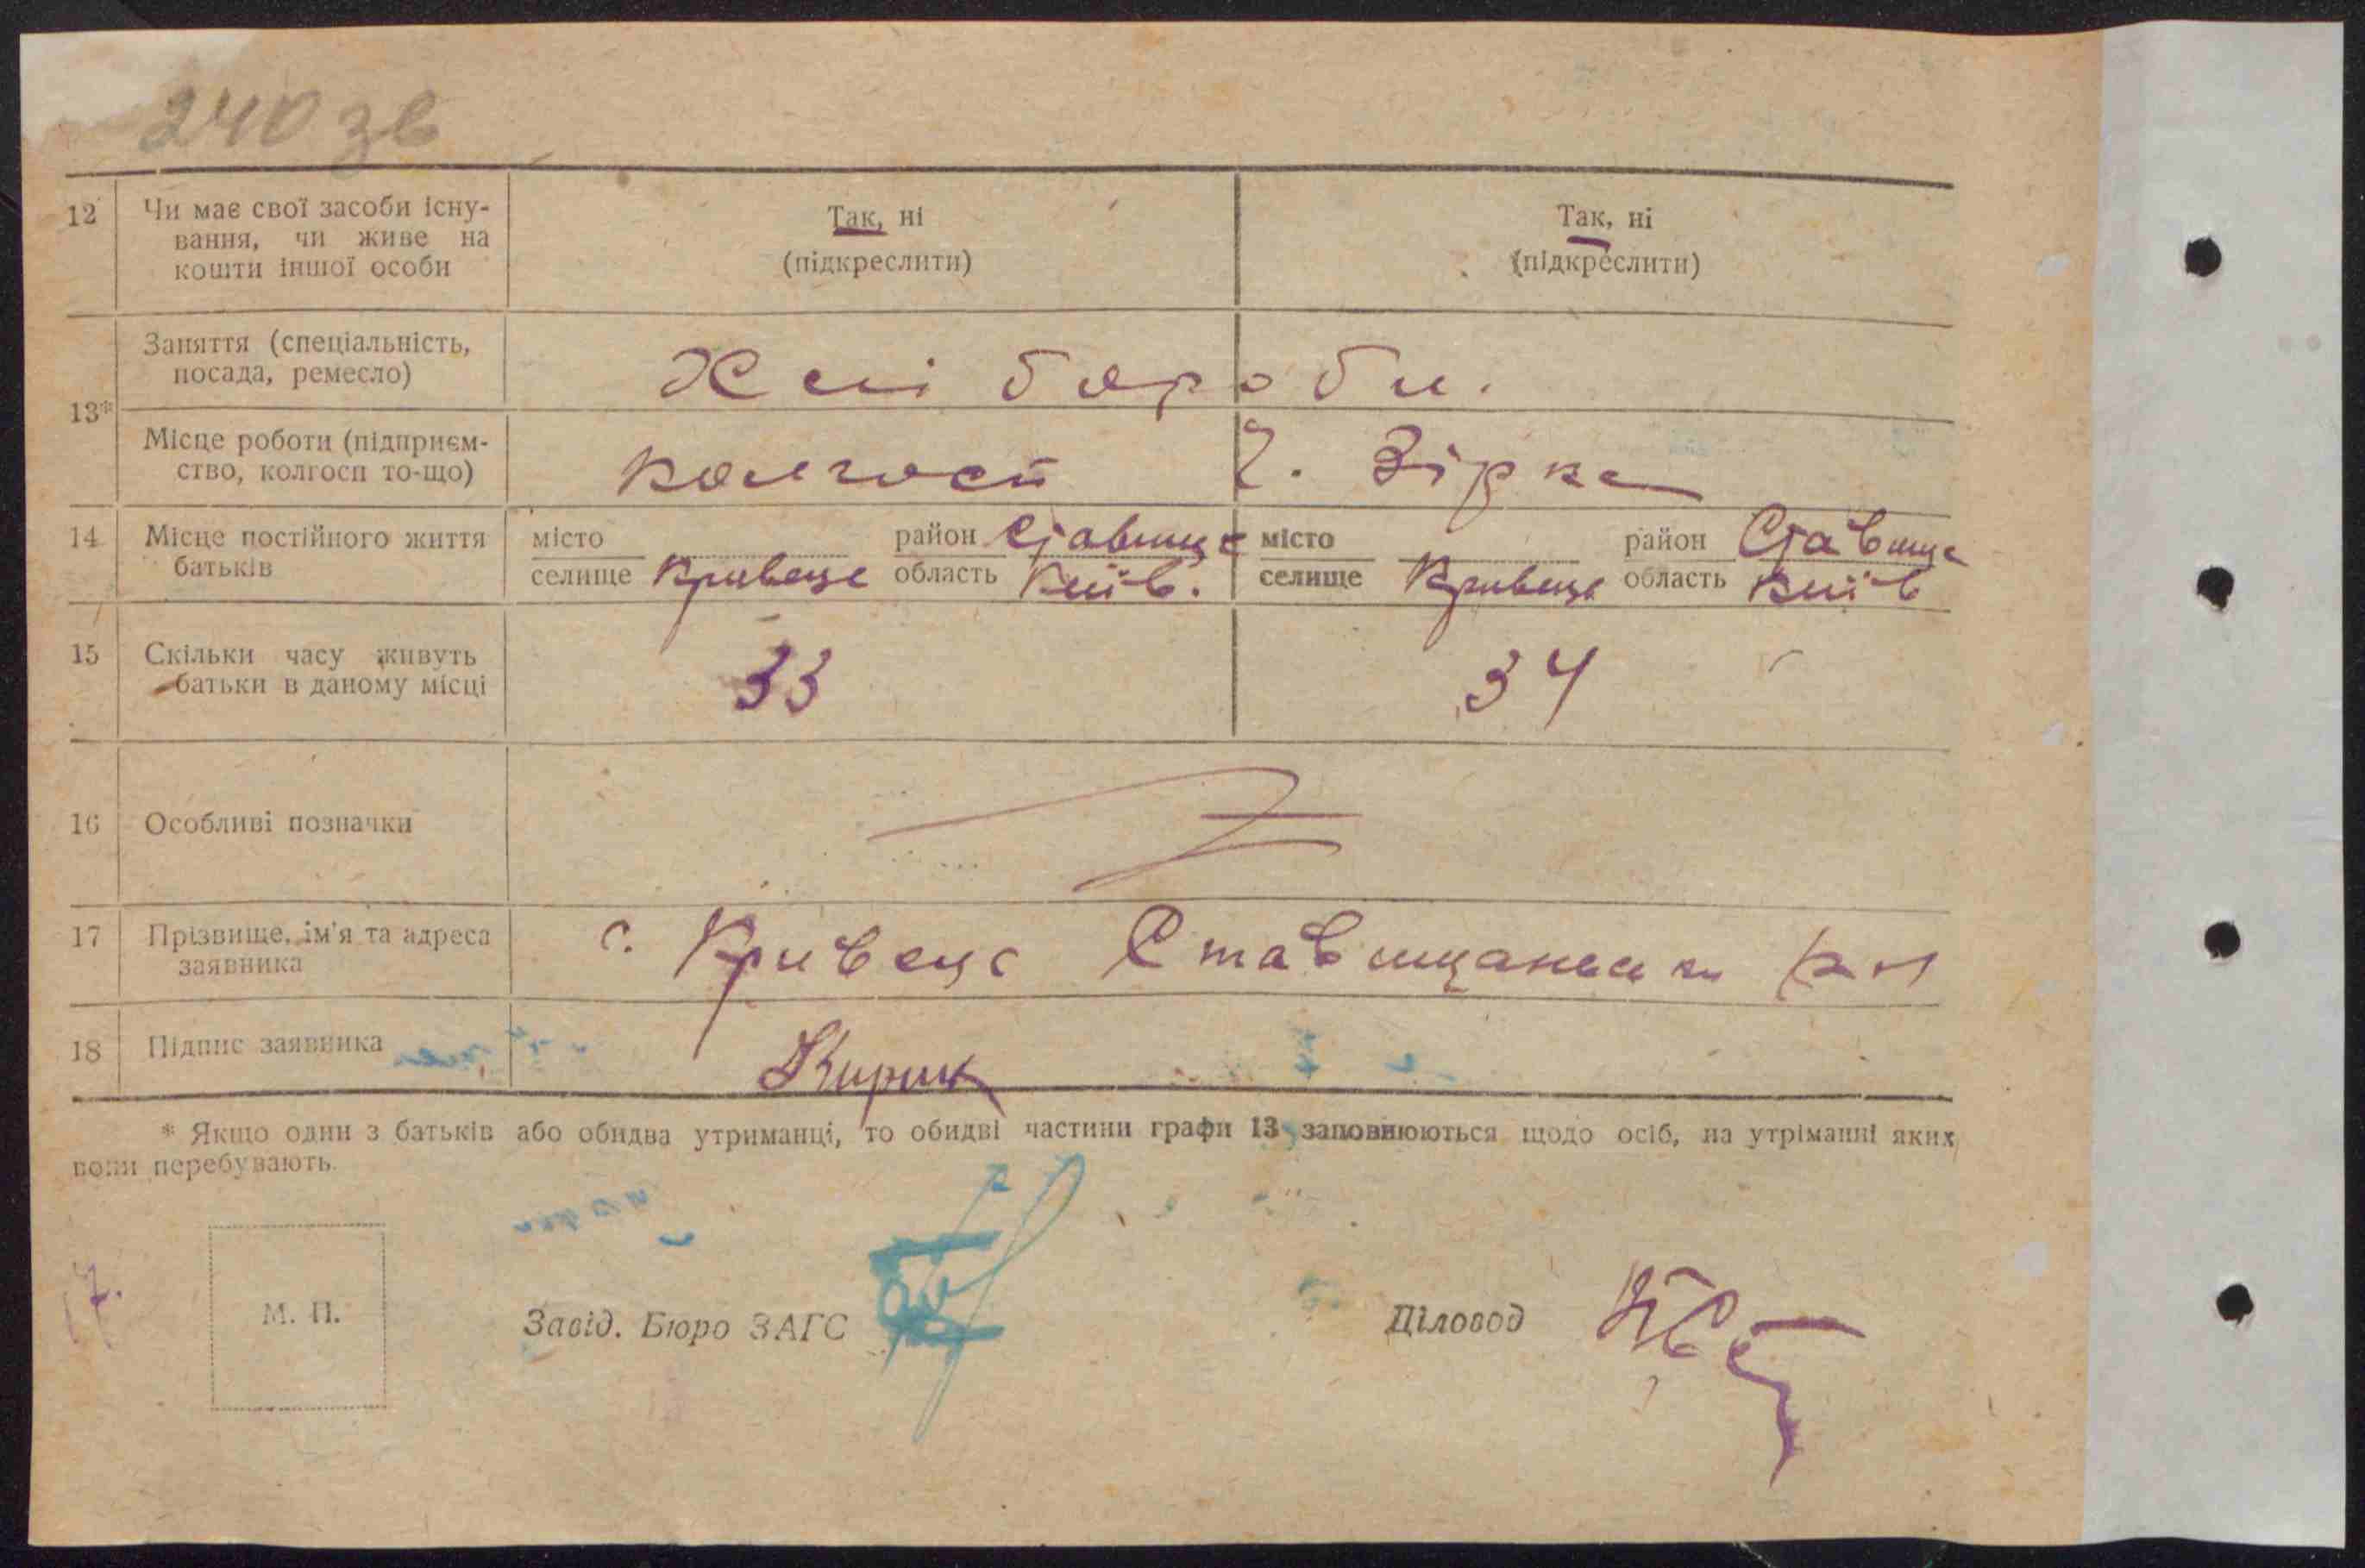 240 зв
12 Чи має свої засоби існу- Так, ні Так, ні
вання, чи живе на (підкреслити) (підкреслити)
кошти іншої особи
Заняття (спеціальність,
посада, ремесло) Хлібороби.
13*
Місце роботи (підприєм-
ство, колгосп то-що) колгосп Ч. Зірка
14 Місце постійного життя місто район Ставище місто район Ставище
батьків селище Кривець область Київ. селище Кривець область Київ
15 Скільки часу живуть 33 34
батьки в даному місці
16 Особливі позначки
17 Прізвище, ім'я та адреса с. Кривець Ставищанськ рн
заявника
18 Підпис заявника Кирик
* Якщо один з батьків або обидва утриманці, то обидві частини графи 13 заповнюються щодо осіб, на утріманні яких
вони перебувають.
М. П. Завід. Бюро ЗАГС Діловод